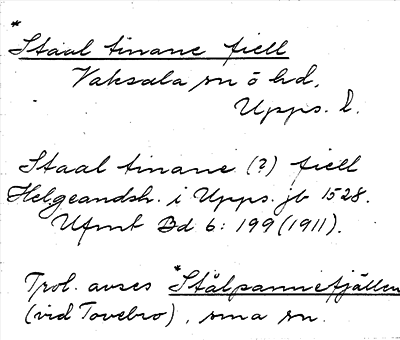 *Staal tinane fiell
Vaksala sn ö hd,
Upps. l.
Staal tinane (?) fiell
Helgeandsh. i Upps. jb 1528.
Ufmt Bd 6: 199 (1911).
Trol. avses *Stålpannefjällen
(vid Tovebro), sma sn.